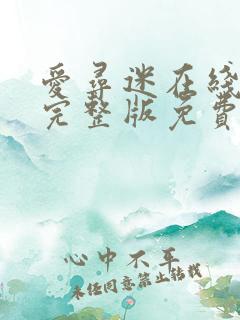 爱寻迷在线
完整版免费
心中不平
未经同意禁止转载